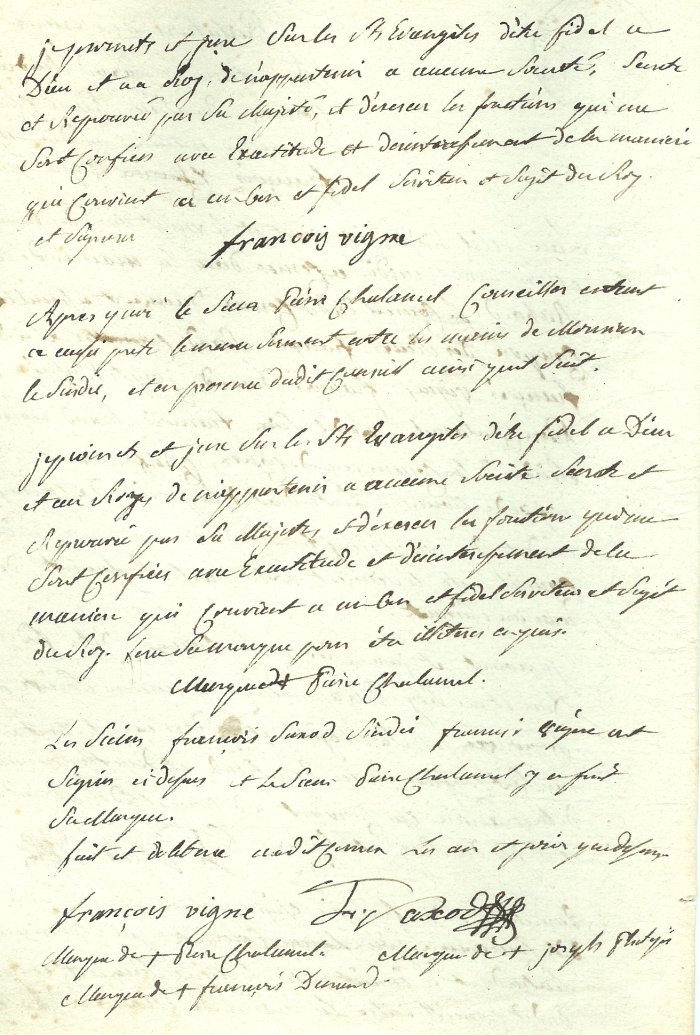 je promets et jure Sur les Sts Evangiles d'être fidel a
Dieu et au Roy, de n'appartenir a aucune Société, Secrete
et Reprouvée par Sa Majesté, et d'exercer les fonctions qui me
Sont Confiées avec Exactitude et desinteressement de la maniere
qui Convient a un bon et fidel Serviteur et Sujet du Roy.
et Signeur
françois vigne
Apres quoi le Sieur Pierre Chalamel Conseiller entrant
a aussi preté le meme Serment entre les mains de Monsieur
le Sindic, et en presence dudit Conseil ainsi quil Suit.
je promets et jure Sur les Sts Evangiles d'être fidel a Dieu
et au Roy de n'appartenir a aucune Societé Secrete et
Reprouvée par Sa Majesté et d'exercer les fonction qui me
Sont Confiées avec Exactitude et desinteressement de la
maniere qui Convient a un bon et fidel Serviteur et Sujet
du Roy. Sa marque pour etre illiteré
Marque de + Pierre Chalamel.
Les Sieurs françois Sindic françois Vigne ont
Signés ci dessus et le Sieur Pierre Chalamel y a fait
Sa Marque.
fait et deliberé audit les an et jour que dessus
françois vigne
Marque de + Pierre Chalamel. Marque de + joseph
Marque de + françois Durand.